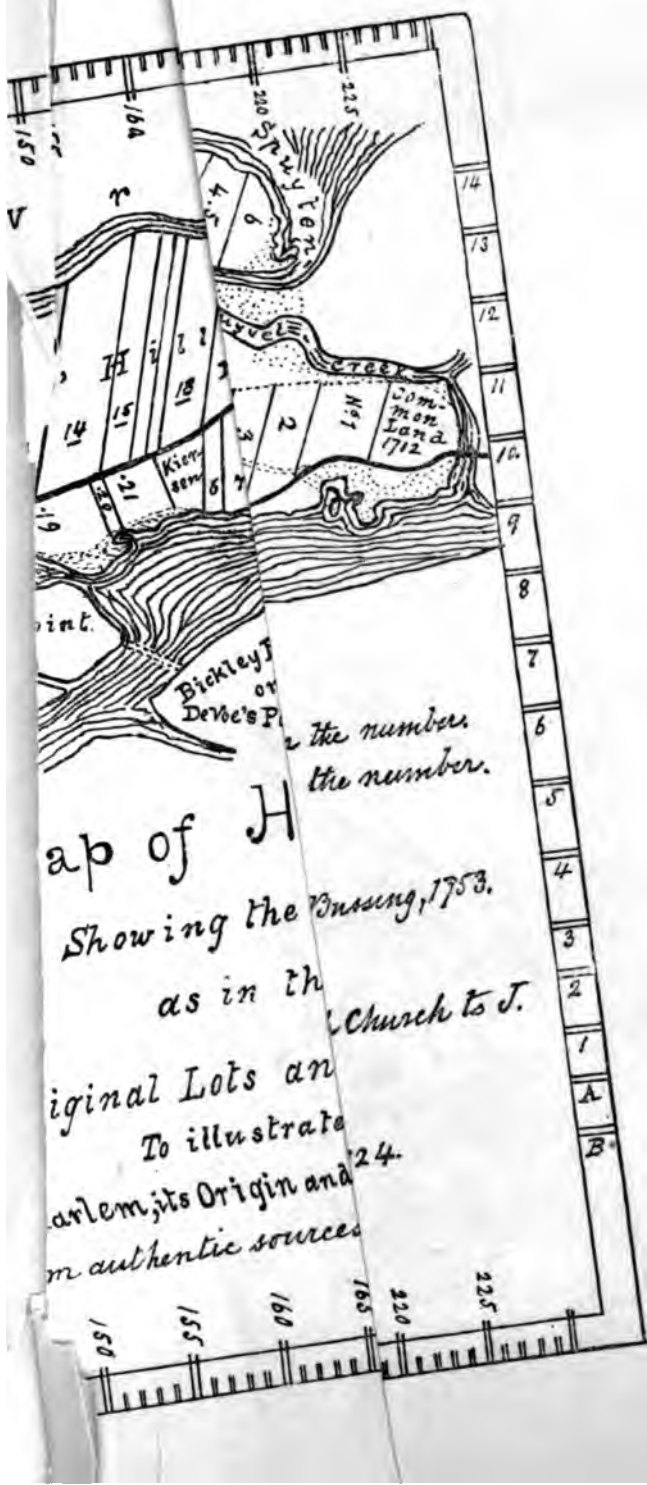 150
164
220
225
V
r
Spuyten
4.5
6
14
13
12
11
10.
9
8
7
6
5
4
3
2
1
A
B.
uyvel
Creek
Hill
14
15
18
3
2
No.1
Com-
mon
Land
1712
19
20
21
Kier-
sen
int.
Bickley P
or
DeVoe's P
the number.
the number.
ap of H
Showing the
Bussing, 1753.
as in th
Church to J.
iginal Lots an
To illustrate
arlem; its Origin and
24.
m authentic sources
150
155
160
165
220
225